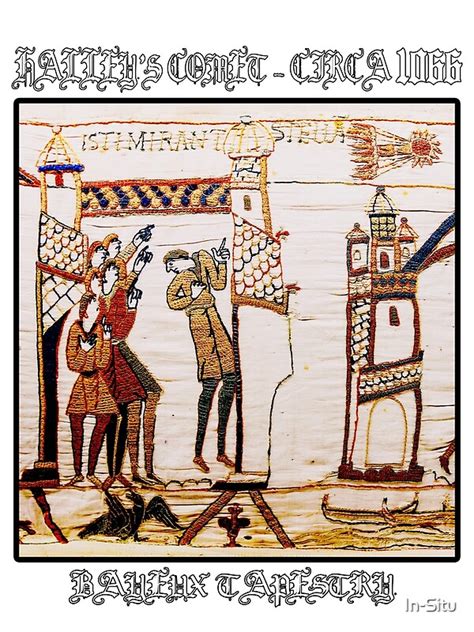 HALLEY'S COMET - CIRCA 1066
ISTI MIRANT STELLA
BAYEUX TAPESTRY
In-Situ